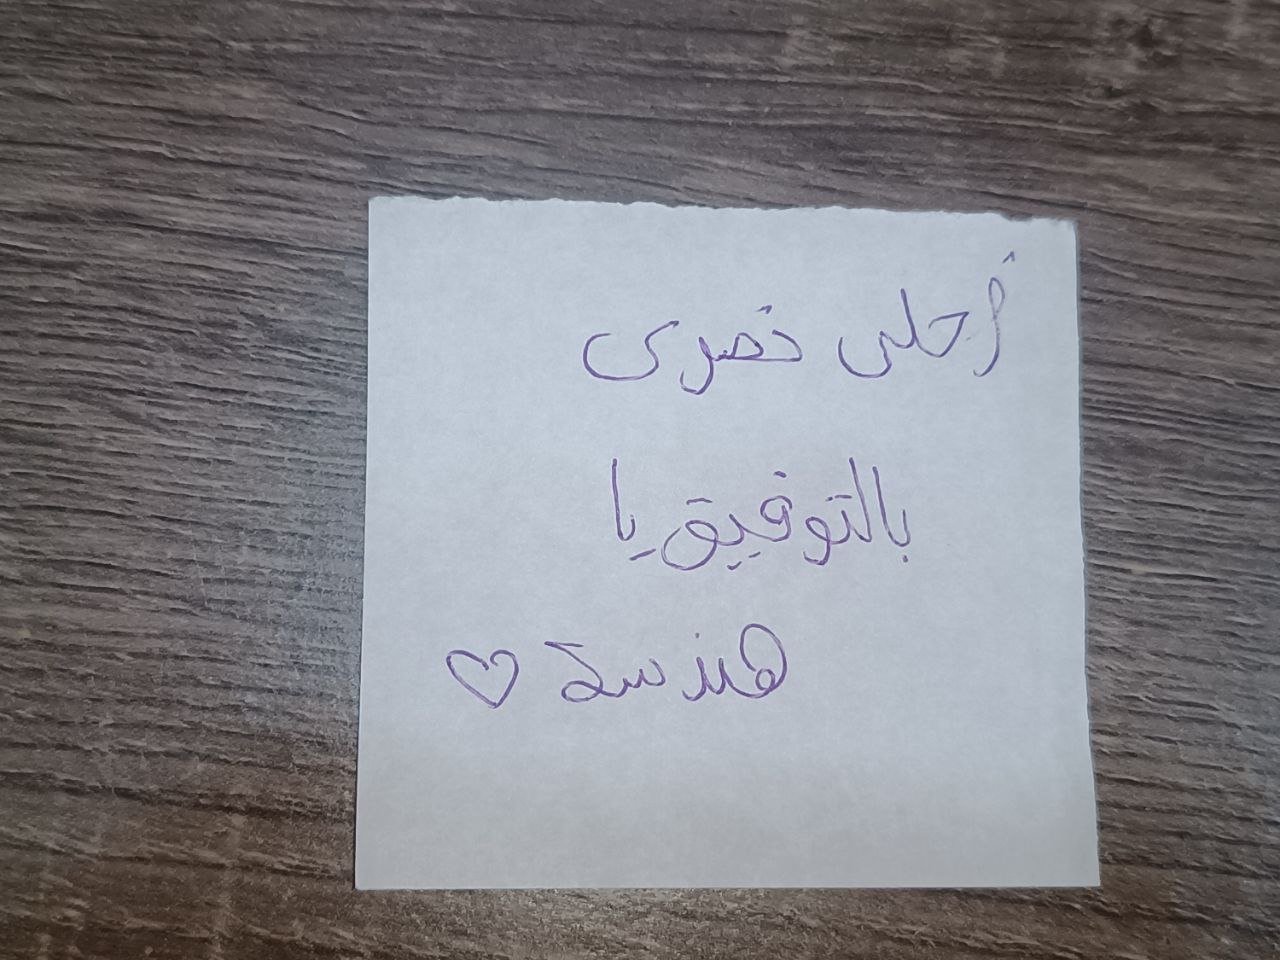 أحلى نصرى
بالتوفيق يا
هندسة ♡